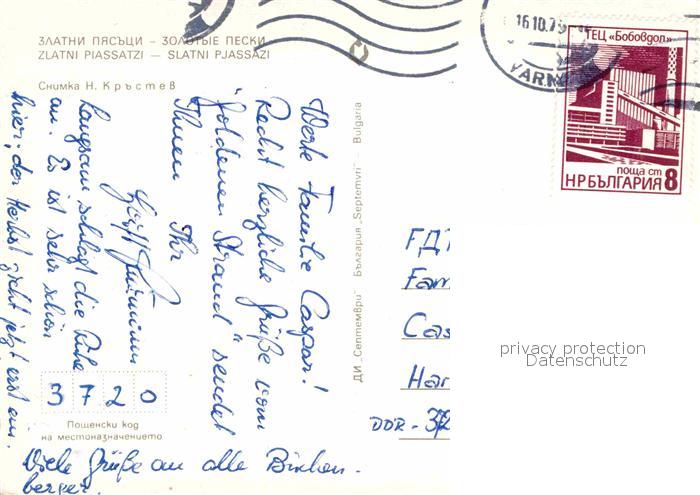 ЗЛАТНИ ПЯСЪЦИ – ЗОЛОТЫЕ ПЕСКИ
ZLATNI PIASSATZI — SLATNI PJASSAZI
Снимка Н. Кръстев
Werte Familie Caspar!
Recht herzliche Grüße vom
"Goldenen Strand" sendet
Ihnen Ihr
Langsam schlägt die Ruhe
an. Es ist sehr schön
hier, der Herbst zieht jetzt erst ein.
3720
Пощенски код
на местоназначението
Viele Grüße an alle
berger.
ДИ „Септември" България „Septemvri" – Bulgaria
16.10.7
VARN
ТЕЦ „Бобовдол"
поща ст
НРБЪЛГАРИЯ 8
Fam
Cas
Har
DDR - 372
privacy protection
Datenschutz